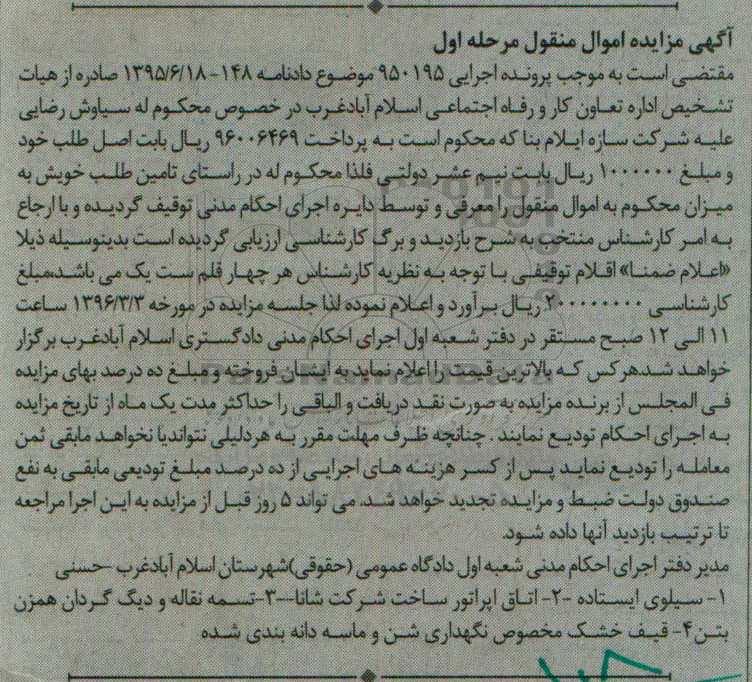 آگهی مزایده اموال منقول مرحله اول
مقتضی است به موجب پرونده اجرایی ۹۵۰۱۹۵ موضوع دادنامه ۱۴۸-۱۳۹۵/۶/۱۸ صادره از هیات
تشخیص اداره تعاون کار و رفاه اجتماعی اسلام آبادغرب در خصوص محکوم له سیاوش رضایی
علیه شرکت سازه ایلام بنا که محکوم است به پرداخت ۹۶۰۰۶۴۶۹ ریال بابت اصل طلب خود
و مبلغ ۱۰۰۰۰۰۰ ریال بابت نیم عشر دولتی فلذا محکوم له در راستای تامین طلب خویش به
میزان محکوم به اموال منقول را معرفی و توسط دایره اجرای احکام مدنی توقیف گردیده و با ارجاع
به امر کارشناس منتخب به شرح بازدید و برگ کارشناسی ارزیابی گردیده است بدینوسیله ذیلا
«اعلام ضمنا» اقلام توقیفی با توجه به نظریه کارشناس هر چهار قلم ست یک می باشد،مبلغ
کارشناسی ۲۰۰۰۰۰۰۰۰۰ ریال برآورد و اعلام نموده لذا جلسه مزایده در مورخه ۱۳۹۶/۳/۳ ساعت
۱۱ الی ۱۲ صبح مستقر در دفتر شعبه اول اجرای احکام مدنی دادگستری اسلام آبادغرب برگزار
خواهد شدهرکس که بالاترین قیمت را اعلام نماید به ایشان فروخته و مبلغ ده درصد بهای مزایده
فی المجلس از برنده مزایده به صورت نقد دریافت و الباقی را حداکثر مدت یک ماه از تاریخ مزایده
به اجرای احکام تودیع نمایند . چنانچه ظرف مهلت مقرر به هردلیلی نتواندیا نخواهد مابقی ثمن
معامله را تودیع نماید پس از کسر هزینه های اجرایی از ده درصد مبلغ تودیعی مابقی به نفع
صندوق دولت ضبط و مزایده تجدید خواهد شد. می تواند ۵ روز قبل از مزایده به این اجرا مراجعه
تا ترتیب بازدید آنها داده شود.
مدیر دفتر اجرای احکام مدنی شعبه اول دادگاه عمومی (حقوقی)شهرستان اسلام آبادغرب -حسنی
۱- سیلوی ایستاده -۲- اتاق اپراتور ساخت شرکت شانا--۳-تسمه نقاله و دیگ گردان همزن
بتن۴- قیف خشک مخصوص نگهداری شن و ماسه دانه بندی شده